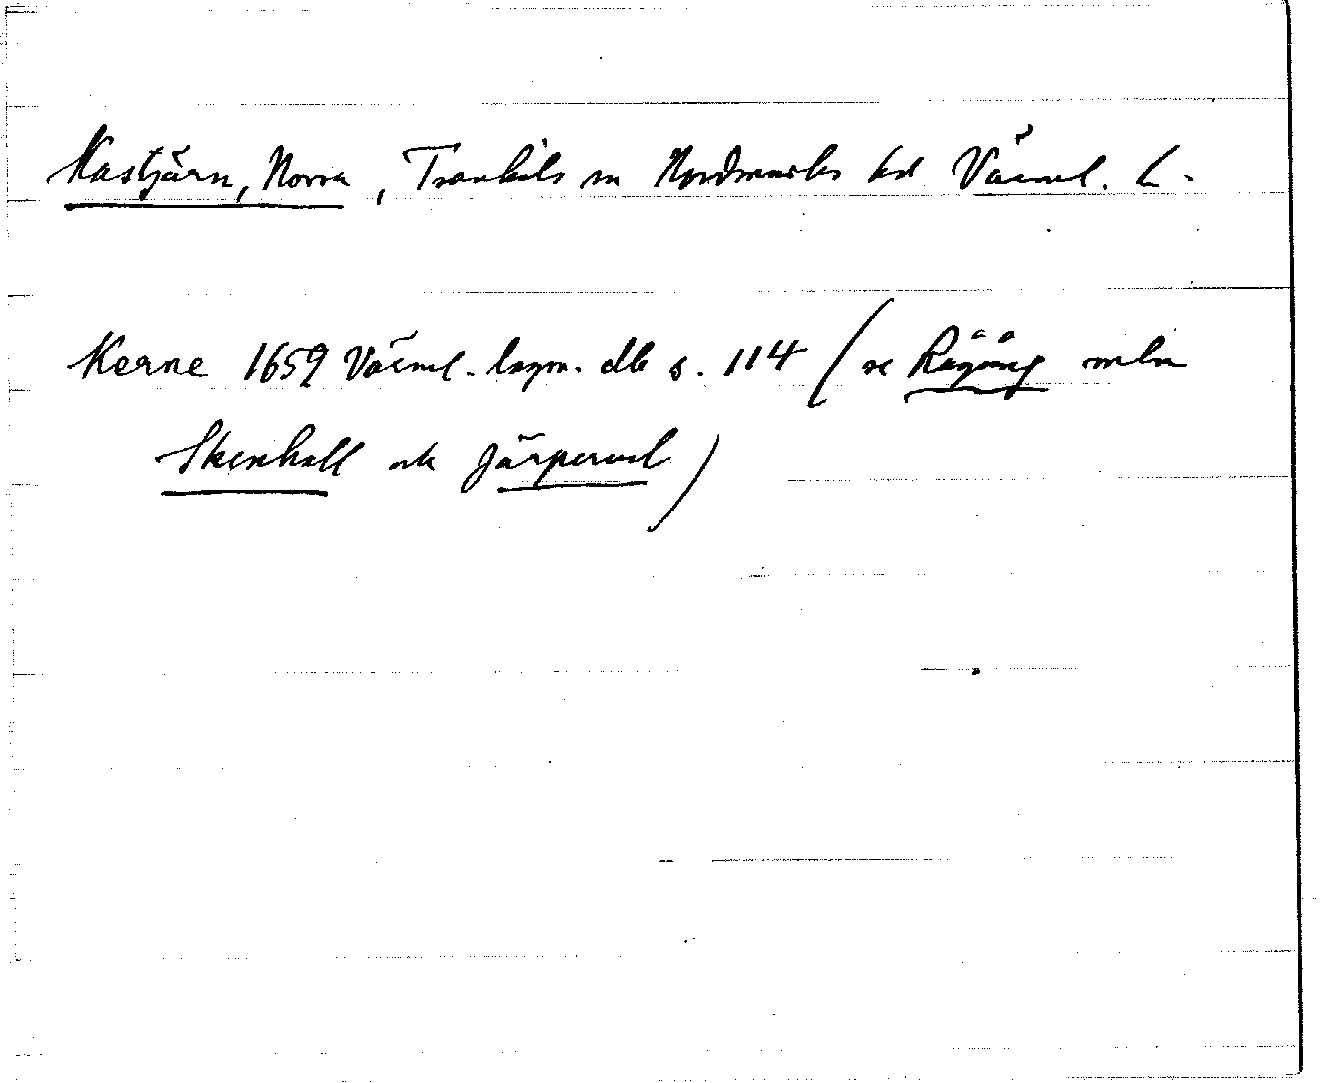 Kastjärn, Norra, Trankils sn Nordmarks hd Värml. L.
Kerne 1659 Värml. lagm. db s. 114 (se Rågång mln
Skenhall och Järperud)